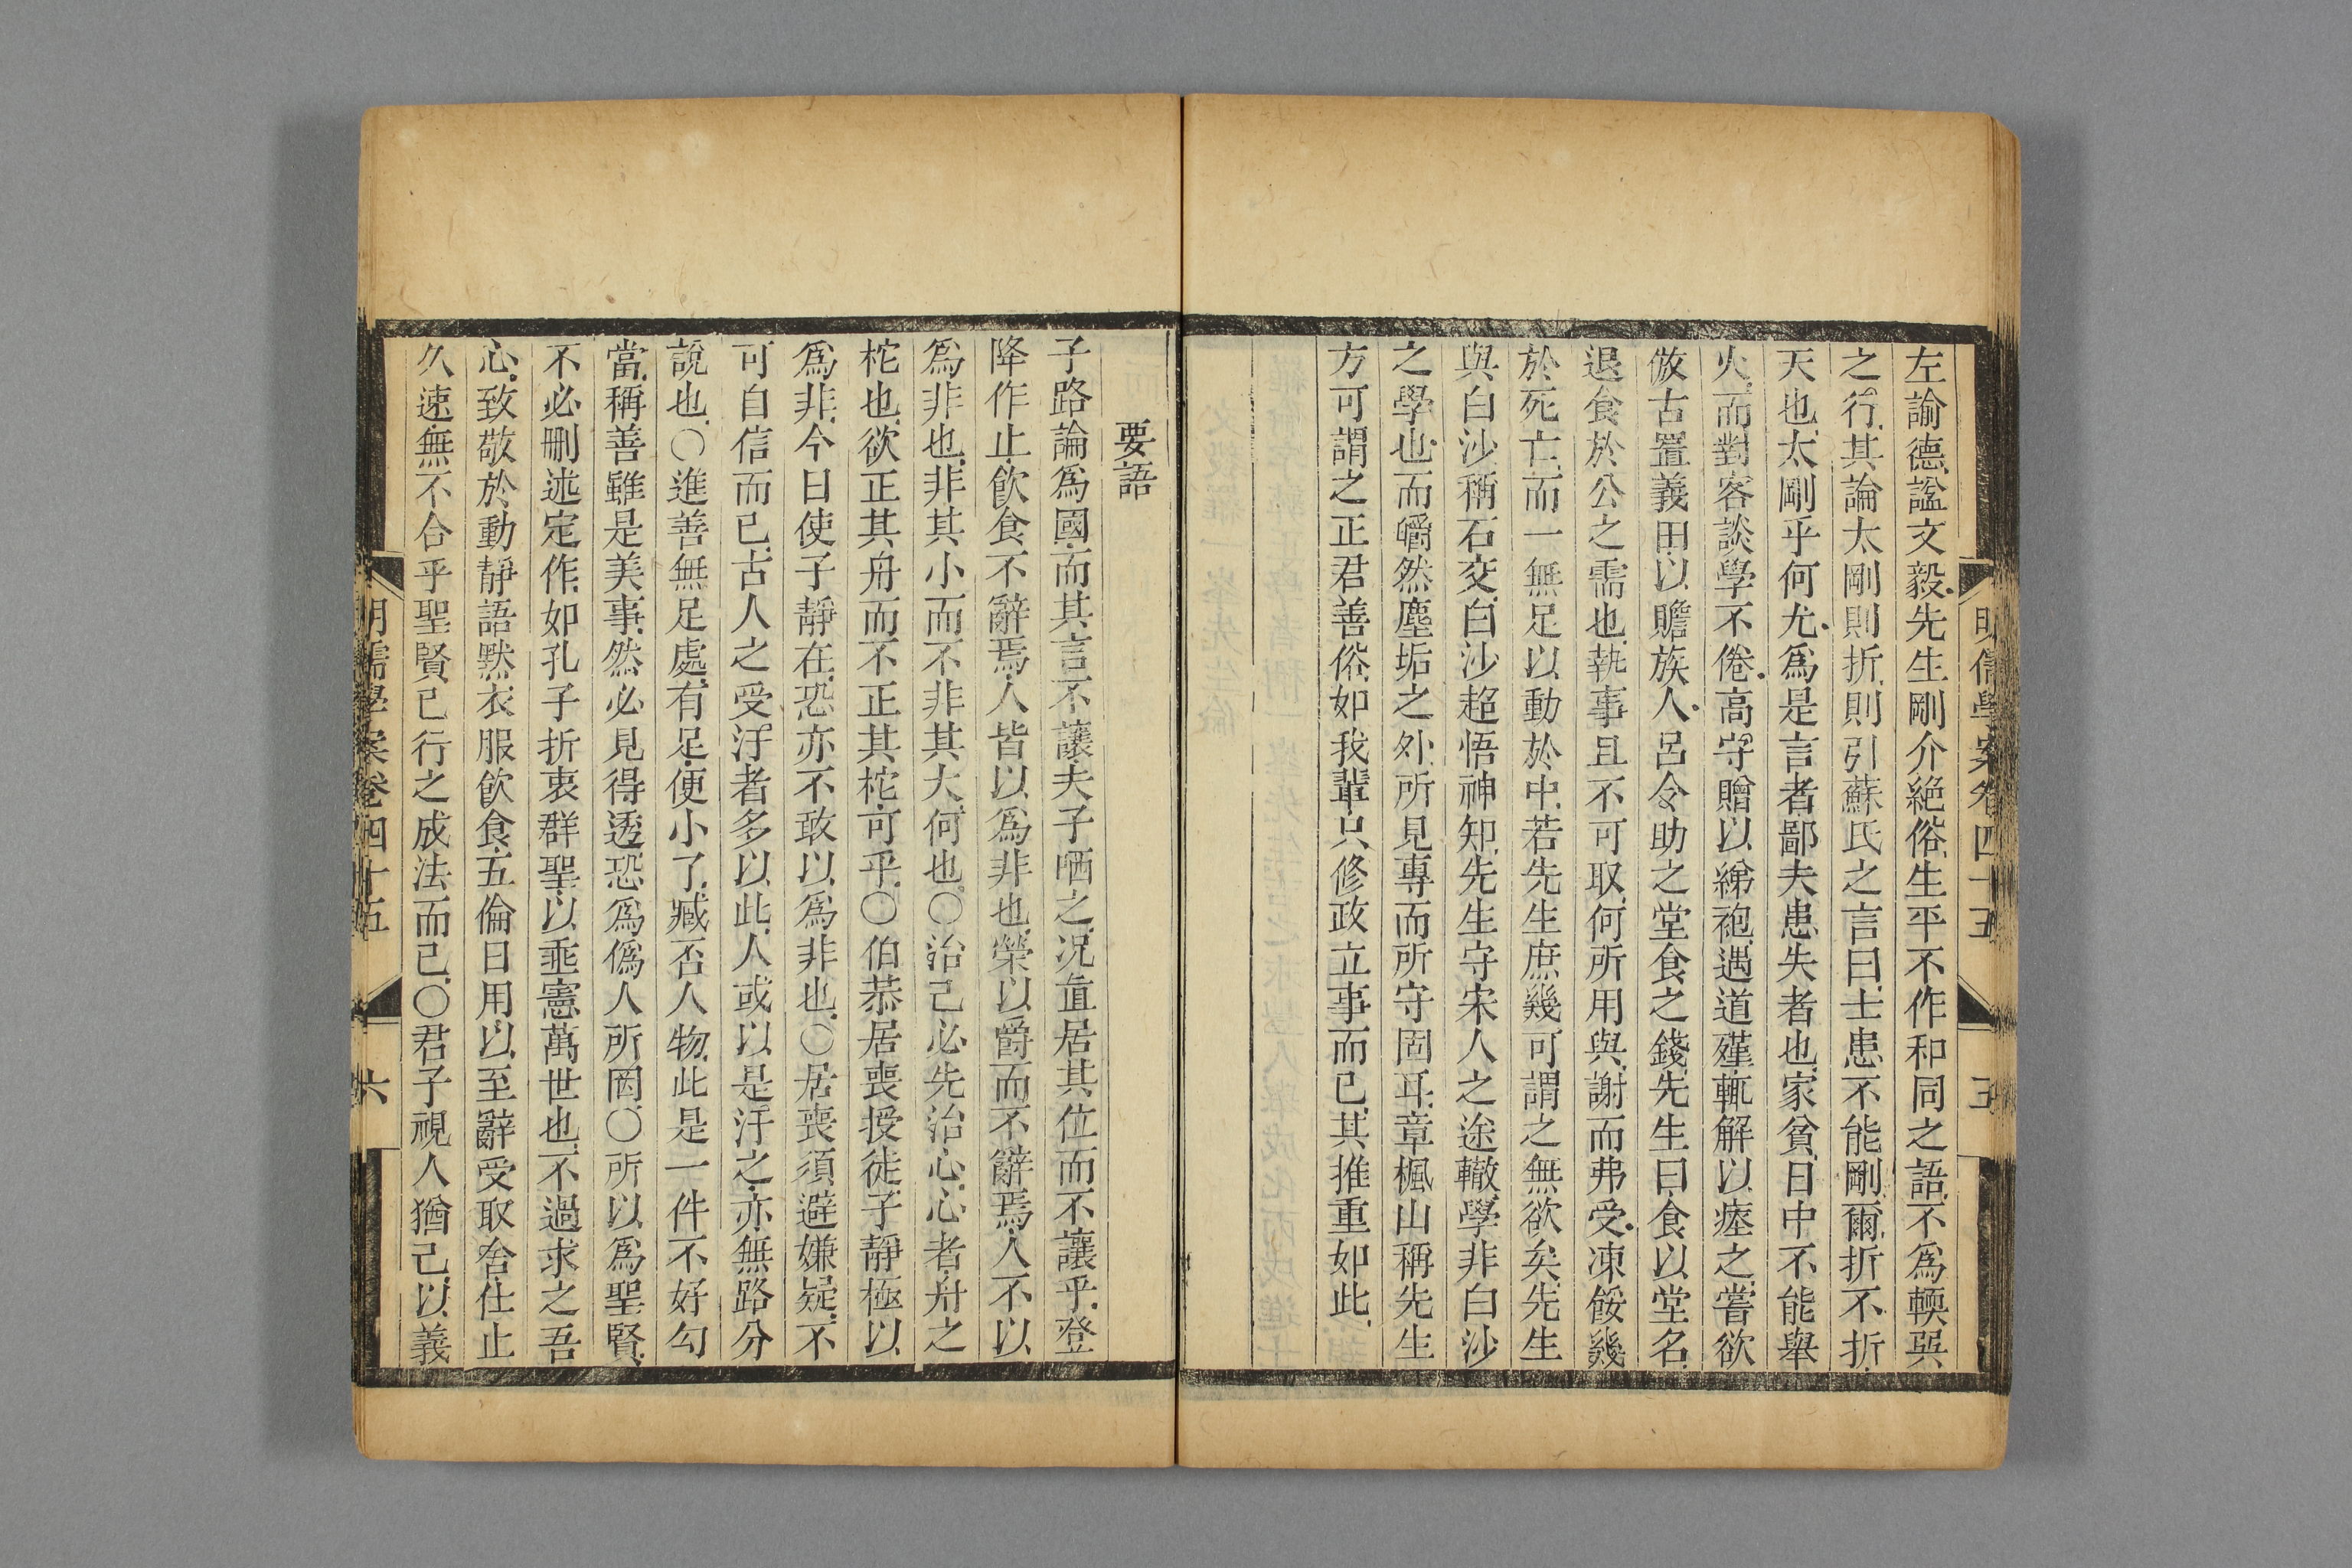 明儒學案卷四十五
五
左諭德諡文毅先生剛介絶俗生平不作和同之語不爲輭巽
之行其論太剛則折則引蘇氏之言曰士患不能剛爾折不折
天也太剛乎何尤爲是言者鄙夫患失者也家貧日中不能舉
火而對客談學不倦高守贈以綈袍遇道殣輒解以瘞之嘗欲
倣古置義田以贍族人呂令助之堂食之錢先生曰食以堂名
退食於公之需也執事且不可取何所用與謝而弗受凍餒幾
於死亡而一無足以動於中若先生庶幾可謂之無欲矣先生
與白沙稱石交白沙超悟神知先生守宋人之途轍學非白沙
之學也而皭然塵垢之外所見專而所守固耳章楓山稱先生
方可謂之正君善俗如我輩只修政立事而已其推重如此
要語
子路論爲國而其言不讓夫子哂之况直居其位而不讓乎登
降作止飲食不辭焉人皆以爲非也榮以爵而不辭焉人不以
爲非也非其小而不非其大何也○治己必先治心心者舟之
柁也欲正其舟而不正其柁可乎○伯恭居喪授徒子靜極以
爲非今日使子靜在恐亦不敢以爲非也○居喪須避嫌疑不
可自信而已古人之受汙者多以此人或以是汙之亦無路分
說也○進善無足處有足便小了臧否人物此是一件不好勾
當稱善雖是美事然必見得透恐爲僞人所罔○所以爲聖賢
不必刪述定作如孔子折衷群聖以垂憲萬世也不過求之吾
心致敬於動靜語默衣服飲食五倫日用以至辭受取舍仕止
久速無不合乎聖賢已行之成法而已○君子視人猶己以義
明儒學案卷四十五
六